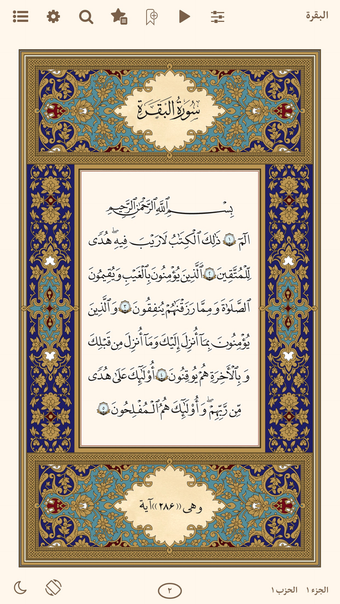 البقرة
سُورَةُ الْبَقَرَةِ
بِسْمِ اللَّهِ الرَّحْمَٰنِ الرَّحِيمِ
الٓمٓ ۝١ ذَٰلِكَ ٱلْكِتَٰبُ لَا رَيْبَ فِيهِ ۛ هُدًى
لِّلْمُتَّقِينَ ۝٢ ٱلَّذِينَ يُؤْمِنُونَ بِٱلْغَيْبِ وَيُقِيمُونَ
ٱلصَّلَوٰةَ وَمِمَّا رَزَقْنَٰهُمْ يُنفِقُونَ ۝٣ وَٱلَّذِينَ
يُؤْمِنُونَ بِمَآ أُنزِلَ إِلَيْكَ وَمَآ أُنزِلَ مِن قَبْلِكَ
وَبِٱلْأَخِرَةِ هُمْ يُوقِنُونَ ۝٤ أُو۟لَٰٓئِكَ عَلَىٰ هُدًى
مِّن رَّبِّهِمْ ۖ وَأُو۟لَٰٓئِكَ هُمُ ٱلْمُفْلِحُونَ ۝٥
وهى ((٢٨٦)) آية
الجزء ١ الحزب ١
٢